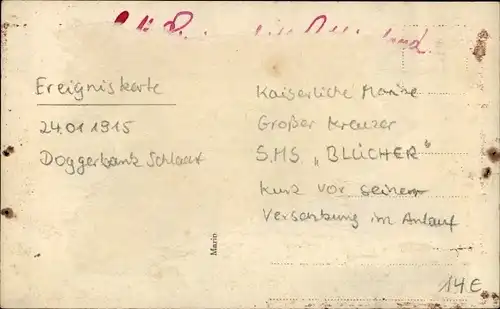 Ereigniskarte
24.01 1915
Doggerbank Schlact
Kaiserliche Marine
Großer Kreuzer
S.M.S „BLÜCHER“
kurz vor seiner
Versenkung im Anlauf
Mario
14€